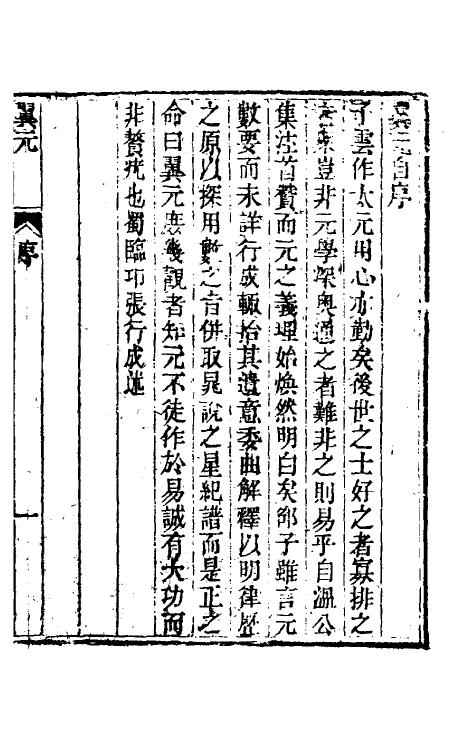 翼元自序
子雲作太元用心亦勤矣後世之士好之者寡排之
者衆豈非元學深奥通之者難非之則易乎自溫公
集注首贊而元之義理始煥然明白矣邵子雖言元
數要而未詳行成輒拾其遺意委曲解釋以明律歴
之原以探用數之旨併取晁說之星紀譜而是正之
命曰翼元庶幾觀者知元不徒作於易誠有大功而
非贅疣也蜀臨邛張行成述
翼元
序
一